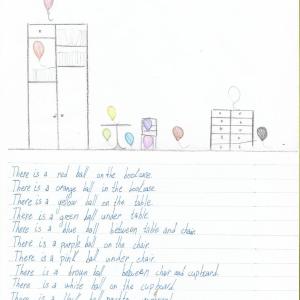 There is a red ball on the bookcase.
There is a orange ball in the bookcase
There is a yellow ball on the table.
There is a green ball under table.
There is a blue ball between table and chair.
There is a purple ball on the chair.
There is a pink ball under chair.
There is a brown ball between chair and cupboard.
There is a white ball on the cupboard.
There is a black ball